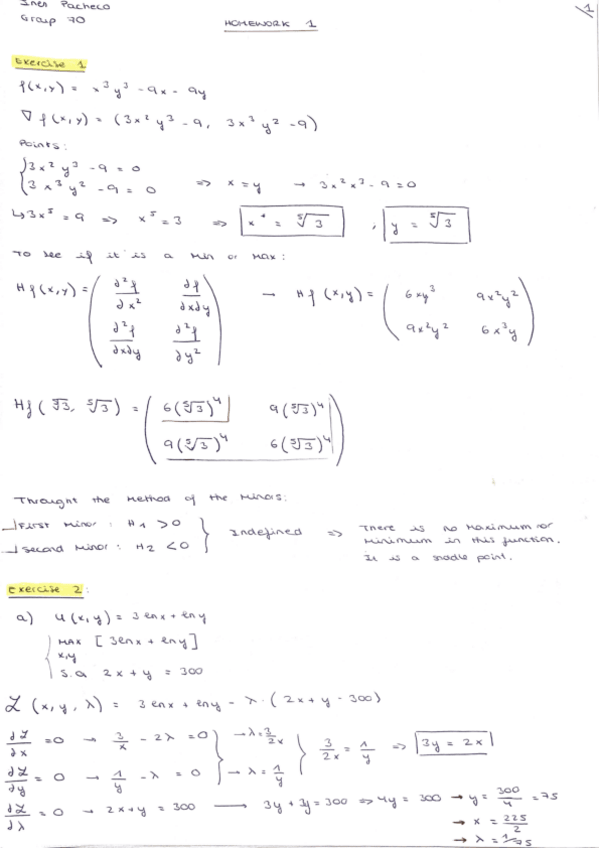 Ines Pacheco
Group 70
HOMEWORK 1
1
Exercise 1
f(x,y) = x³y³ - 9x - 9y
∇f(x,y) = (3x²y³ - 9, 3x³y² - 9)
Points:
{3x²y³ - 9 = 0
{3x³y² - 9 = 0 => x = y → 3x²x³ - 9 = 0
↳ 3x⁵ = 9 => x⁵ = 3 => x* = ⁵√3 ; y = ⁵√3
To see if it is a min or max:
Hf(x,y) = ( ∂²f/∂x² ∂f/∂x∂y ; ∂²f/∂x∂y ∂²f/∂y² ) → Hf(x,y) = ( 6xy³ 9x²y² ; 9x²y² 6x³y )
Hf(⁵√3, ⁵√3) = ( 6(⁵√3)⁴ 9(⁵√3)⁴ ; 9(⁵√3)⁴ 6(⁵√3)⁴ )
Throught the method of the minors:
First minor: H₁ > 0
Second minor: H₂ < 0 } Indefined => There is no maximum or
minimum in this function.
It is a saddle point.
Exercise 2:
a) U(x,y) = 3 lnx + lny
MAX [3lnx + lny]
x,y
S.a 2x + y = 300
ℒ(x,y,λ) = 3 lnx + lny - λ·(2x + y - 300)
∂ℒ/∂x = 0 → 3/x - 2λ = 0 → λ = 3/2x
∂ℒ/∂y = 0 → 1/y - λ = 0 → λ = 1/y } 3/2x = 1/y => 3y = 2x
∂ℒ/∂λ = 0 → 2x + y = 300 → 3y + y = 300 => 4y = 300 → y = 300/4 = 75
→ x = 225/2
→ λ = 1/75